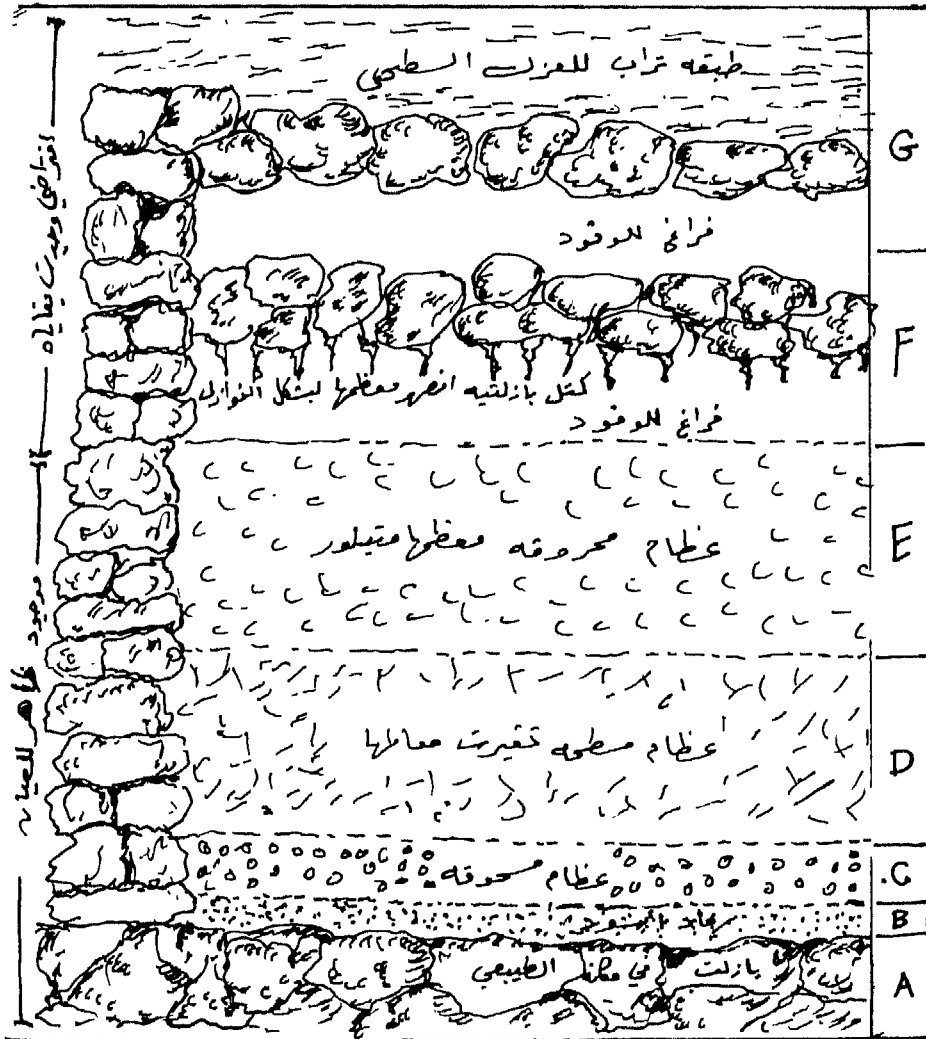 طبقه تراب للعزل السطحي
G
فراغ للوقود
F
كتل بازلتيه انصهر معظمها بشكل النوازل
فراغ للوقود
E
عظام محروقه معظمها متبلور
D
عظام مسطحه تغيرت معالمها
C
عظام مسحوقه
B
رماد
A
بازلت في مكانه الطبيعي
افتراضي وجدت بقاياه
موجود
ظاهر للعيان